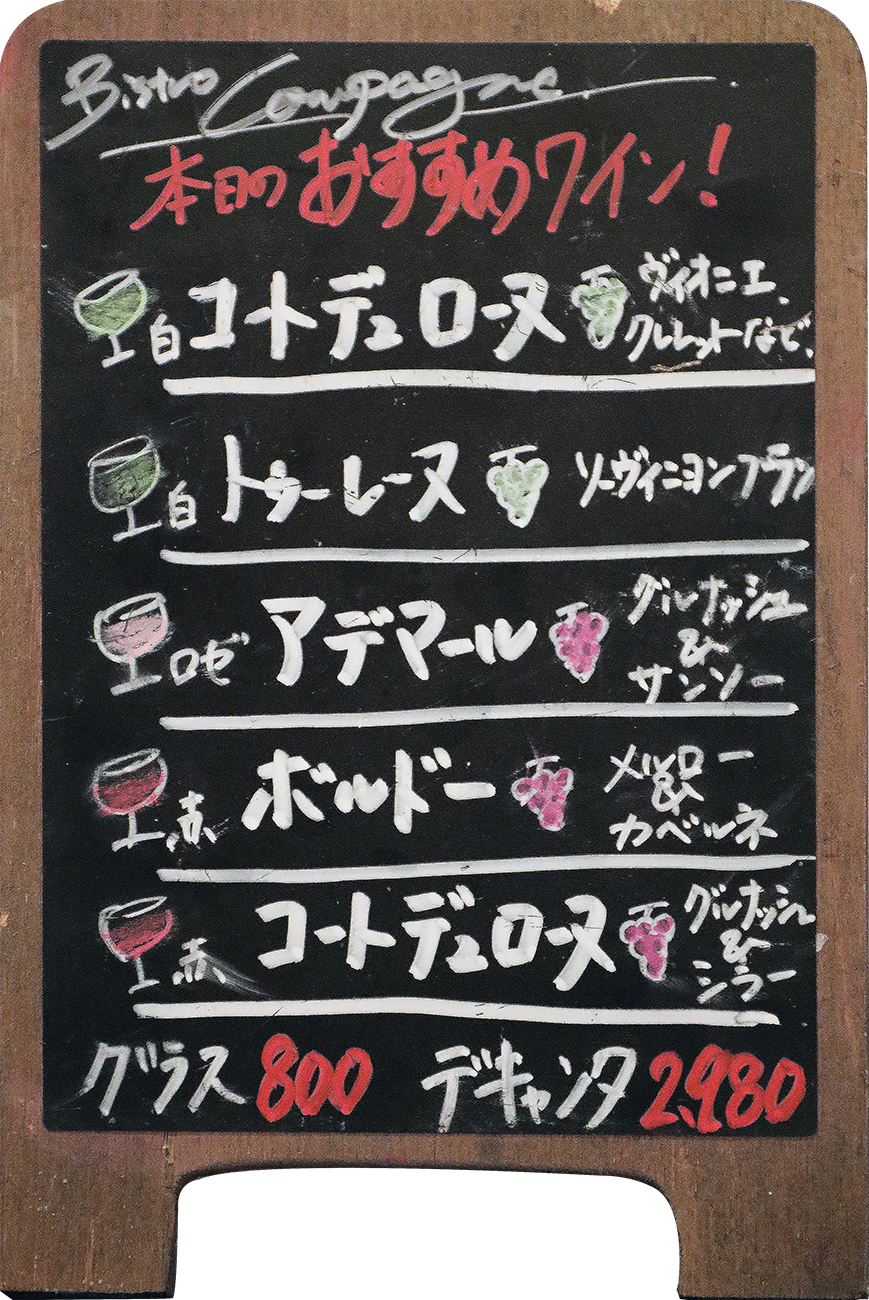 Bistro Compagne
本日のおすすめワイン!
白 コートデュローヌ ヴィオニエ、
クレレットなど、
白 トゥーレーヌ ソーヴィニヨンブラン
ロゼ アデマール グルナッシュ
&
サンソー
赤 ボルドー メルロー
&
カベルネ
赤 コートデュローヌ グルナッシュ
&
シラー
グラス 800 デキャンタ 2,980